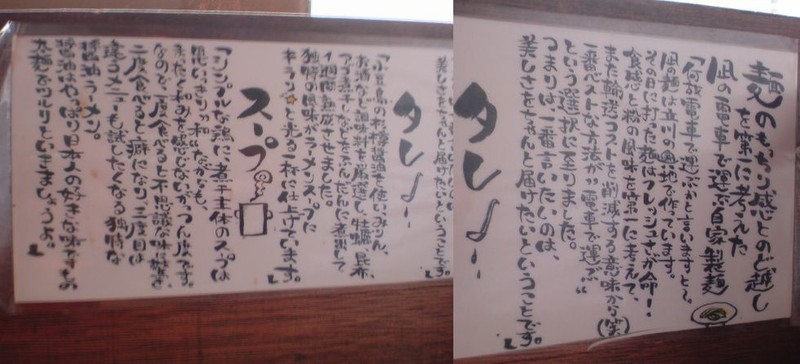 麺のもちもち感とのど越し
を第一に考えた
凪の電車で運ぶ自家製麺
「何故電車で運ぶかと言いますと〜、
凪の麺は立川の団地で作っています。
その日に打った麺はフレッシュさが命!
食感と粉の風味を第一に考えて、
また輸送コストを削減する意味から(笑)
一番ベストな方法が"電車で運ぶ"
という選択に至りました。
つまりは、一番言いたいのは、
美しさをちゃんと届けたいということです。」
タレ
美しさをちゃんと届けたいということです。」
タレ
「小豆島の
お酒など調味料を厳選し、牡蠣、昆布
1週間熟成させました。
独特の風味がラーメンスープに
キラリ☆と光る一杯に仕上げています。」
スープ
「シンプルな鶏に、煮干主体のスープは
思いっきり"和"ながらも、
まったく和みを感じないがつん汁です。
なので、一度食べると不思議な味に驚き、
二度食べると癖になり、三度目は
違うメニューも試したくなる独特な
醤油ラーメン。
醤油はやっぱり日本人の好きな味ですもの
太麺でツルリといきましょうよ。」